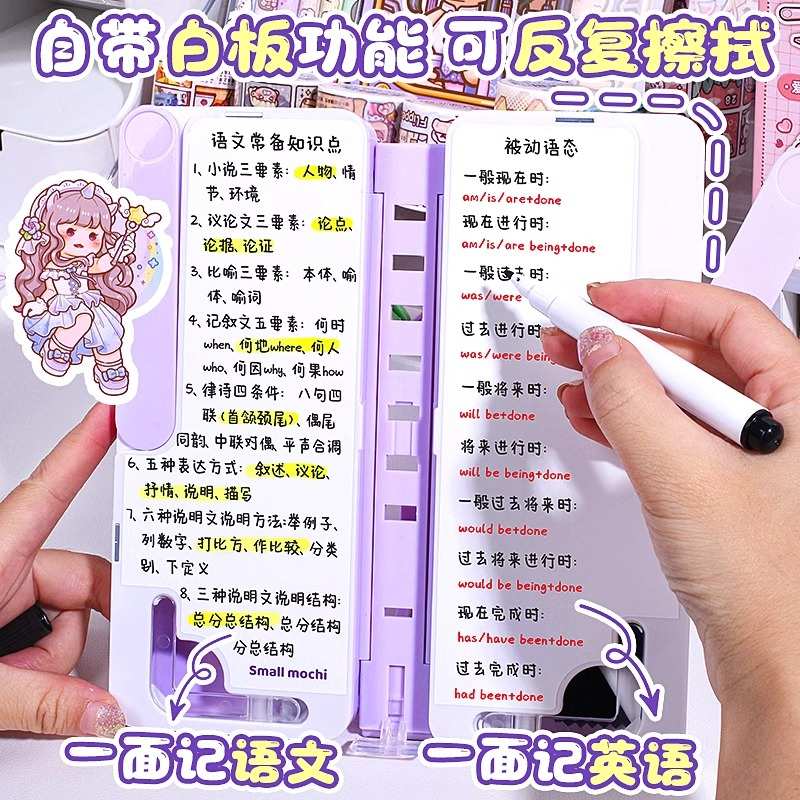 自带白板功能 可反复擦拭
语文常备知识点
1、小说三要素: 人物、情
节、环境
2、议论文三要素: 论点、
论据、论证
3、比喻三要素: 本体、喻
体、喻词
4、记叙文五要素: 何时
when、何地where、何人
who、何因why、何果how
5、律诗四条件: 八句四
联(首颔颈尾)、偶尾
同韵、中联对偶、平声合调
6、五种表达方式: 叙述、议论、
抒情、说明、描写
7、六种说明文说明方法:举例子、
列数字、打比方、作比较、分类
别、下定义
8、三种说明文说明结构:
总分总结构、总分结构
分总结构
Small mochi
被动语态
一般现在时:
am/is/are+done
现在进行时:
am/is/are being+done
一般过去时:
was/were
过去进行时:
was/were being
一般将来时:
will be+done
将来进行时:
will be being+done
一般过去将来时:
would be+done
过去将来进行时:
would be being+done
现在完成时:
has/have been+done
过去完成时:
had been+done
一面记语文
一面记英语